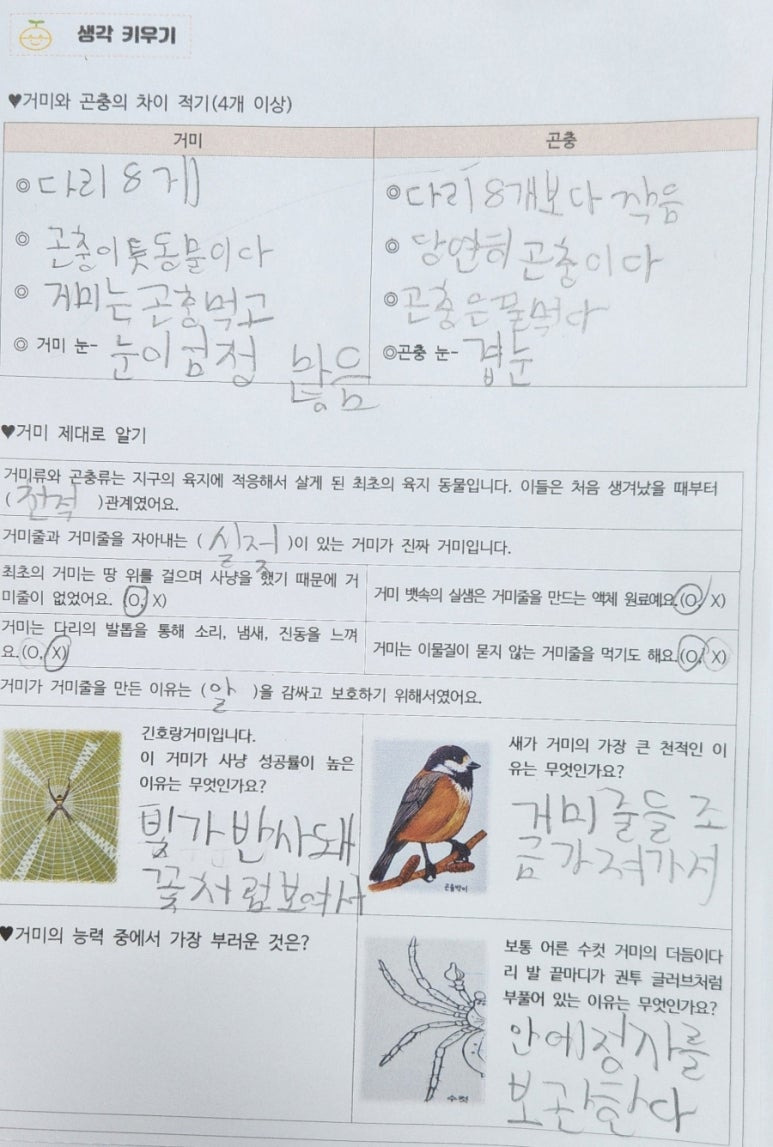 생각 키우기
♥거미와 곤충의 차이 적기(4개 이상)
거미
곤충
◎ 다리 8게
◎ 다리 8개보다 작음
◎ 곤충이 동물이다
◎ 당연히 곤충이다
◎ 거미는 곤충먹고
◎ 곤충은 풀먹다
◎ 거미 눈- 눈이 엄청 많음
◎곤충 눈- 겹눈
♥거미 제대로 알기
거미류와 곤충류는 지구의 육지에 적응해서 살게 된 최초의 육지 동물입니다. 이들은 처음 생겨났을 때부터
( 천적 )관계였어요.
거미줄과 거미줄을 자아내는 ( 실젖 )이 있는 거미가 진짜 거미입니다.
최초의 거미는 땅 위를 걸으며 사냥을 했기 때문에 거
미줄이 없었어요. (O, X)
거미 뱃속의 실샘은 거미줄을 만드는 액체 원료예요.(O, X)
거미는 다리의 발톱을 통해 소리, 냄새, 진동을 느껴
요.(O, X)
거미는 이물질이 묻지 않는 거미줄을 먹기도 해요.(O, X)
거미가 거미줄을 만든 이유는 ( 알 )을 감싸고 보호하기 위해서였어요.
긴호랑거미입니다.
이 거미가 사냥 성공률이 높은
이유는 무엇인가요?
빛가 반사돼
꽃처럼보여서
새가 거미의 가장 큰 천적인 이
유는 무엇인가요?
거미줄들 조
금 가져가서
곤줄박이
♥거미의 능력 중에서 가장 부러운 것은?
보통 어른 수컷 거미의 더듬이다
리 발 끝마디가 권투 글러브처럼
부풀어 있는 이유는 무엇인가요?
안에정자를
보관한다
수컷